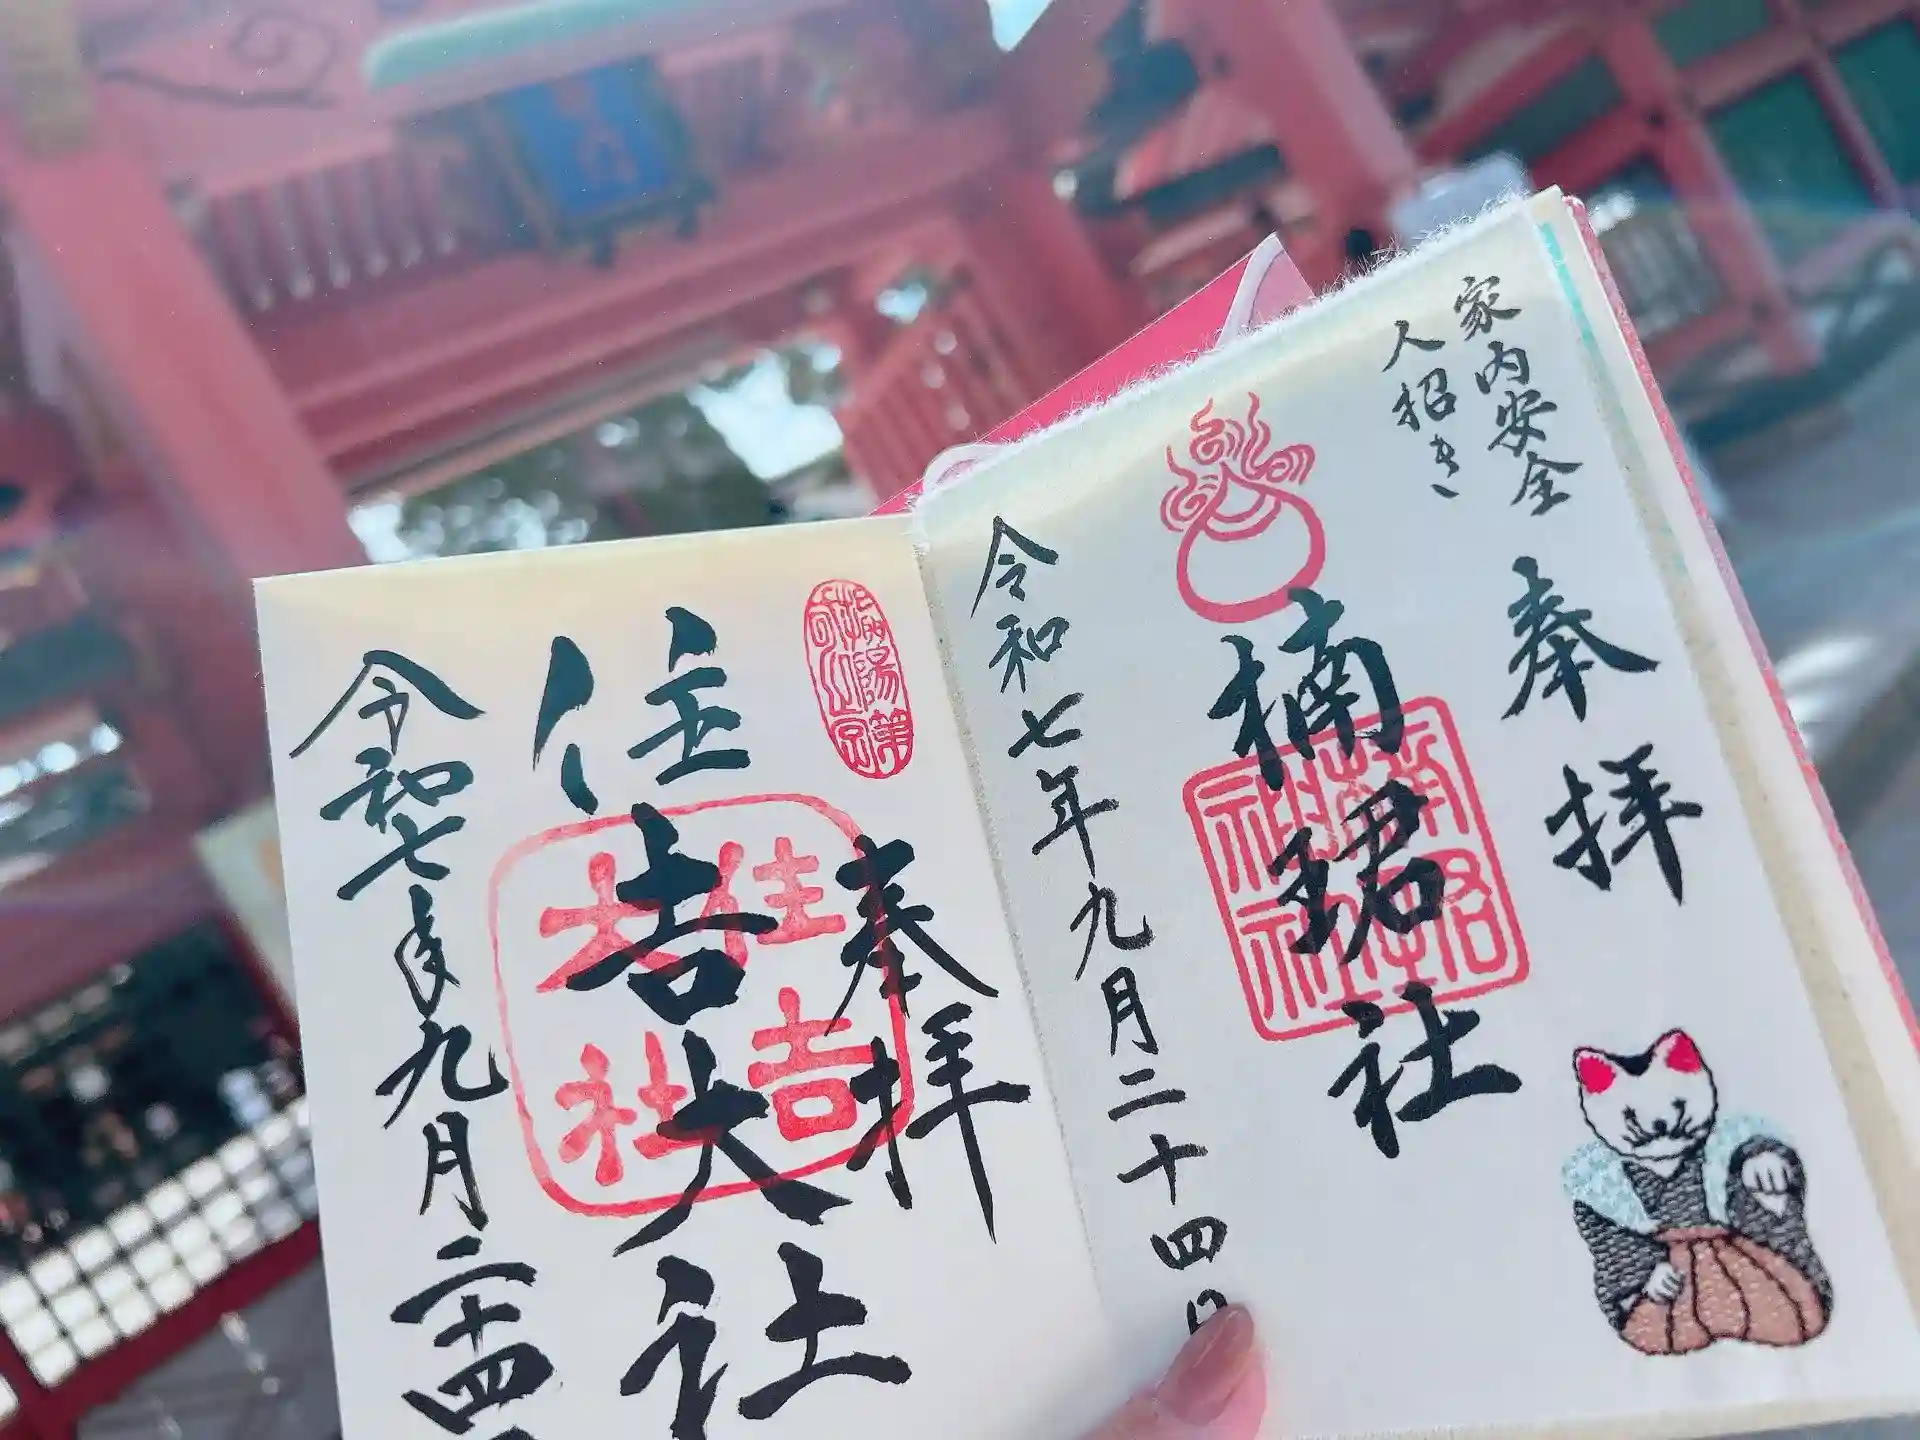 家内安全
人招き
奉拝
楠珺社
楠珺社
令和七年九月二十四日
摂陽第
奉拝
住吉大社
住吉
大社
令和七年九月二十四